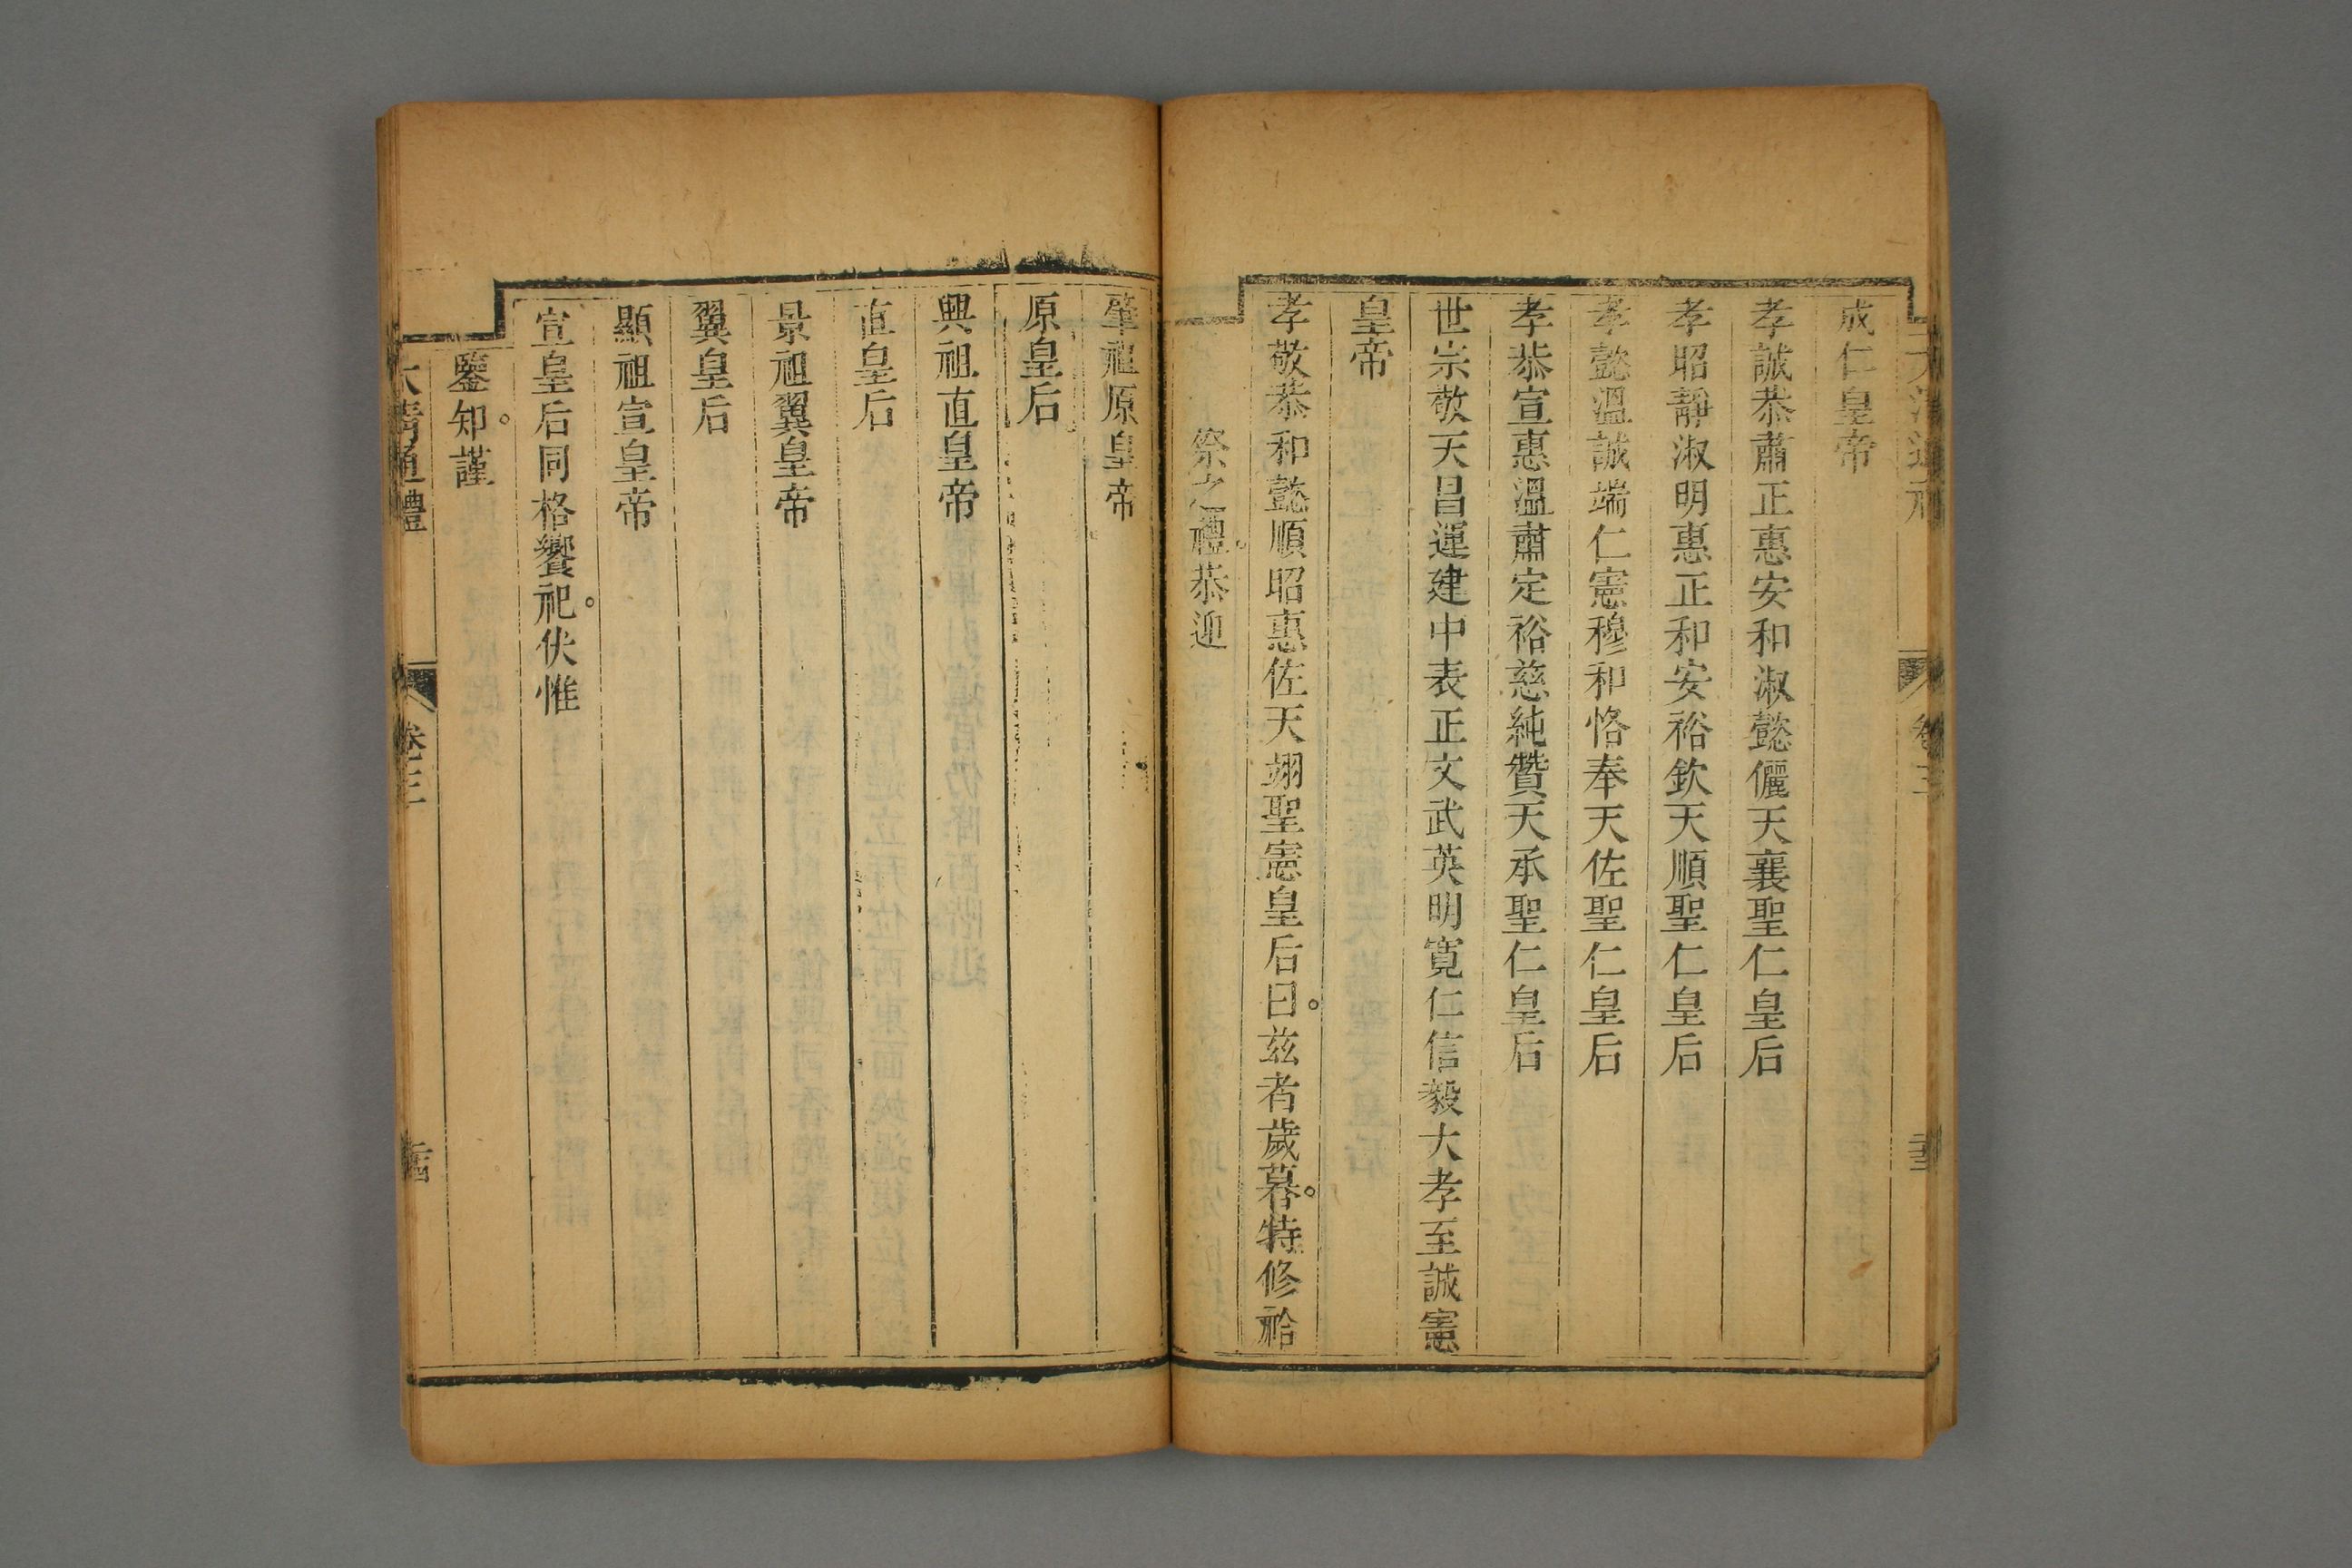 大清通禮 卷三
成仁皇帝
孝誠恭肅正惠安和淑懿儷天襄聖仁皇后
孝昭靜淑明惠正和安裕欽天順聖仁皇后
孝懿溫誠端仁憲穆和恪奉天佐聖仁皇后
孝恭宣惠溫肅定裕慈純贊天承聖仁皇后
世宗敬天昌運建中表正文武英明寬仁信毅大孝至誠憲
皇帝
孝敬恭和懿順昭惠佐天翊聖憲皇后曰。茲者歲暮。特修祫
祭之禮。恭迎
肇祖原皇帝
原皇后
興祖直皇帝
直皇后
景祖翼皇帝
翼皇后
顯祖宣皇帝
宣皇后同格饗祀。伏惟
鑒知。謹
大清通禮 卷三